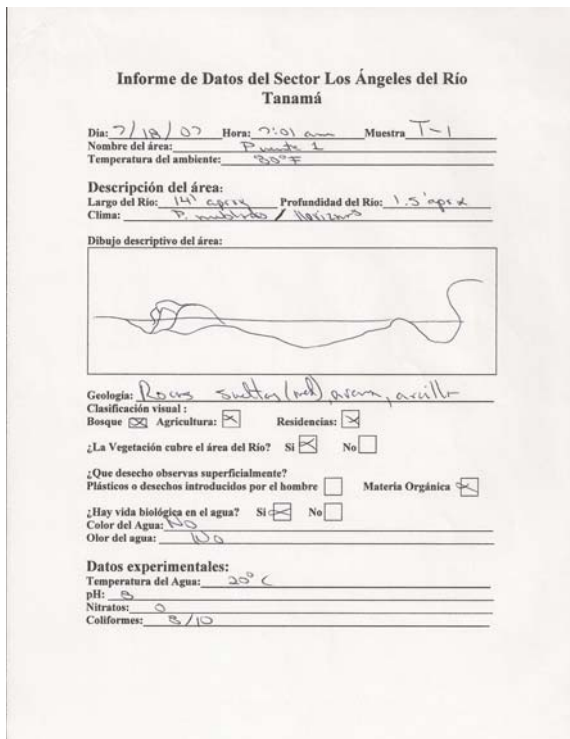 Informe de Datos del Sector Los Ángeles del Río
Tanamá
Dia: 7/18/07 Hora: 7:01 am Muestra T-1
Nombre del área: Puente 1
Temperatura del ambiente: 80°F
Descripción del área:
Largo del Río: 14' aprox Profundidad del Río: 1.5' aprox
Clima: P. nublado /
Dibujo descriptivo del área:
Geología: Rocas sueltas (med), arena, arcilla
Clasificación visual :
Bosque Agricultura: Residencias:
¿La Vegetación cubre el área del Río? Si No
¿Que desecho observas superficialmente?
Plásticos o desechos introducidos por el hombre Materia Orgánica
¿Hay vida biológica en el agua? Si No
Color del Agua: No
Olor del agua: No
Datos experimentales:
Temperatura del Agua: 20° C
pH: 8
Nitratos: 0
Coliformes: 8/10